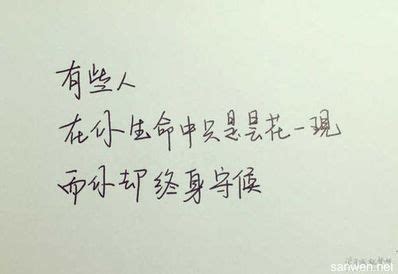 有些人
在你生命中只是昙花一現
而你却终身守候
sanwen.net